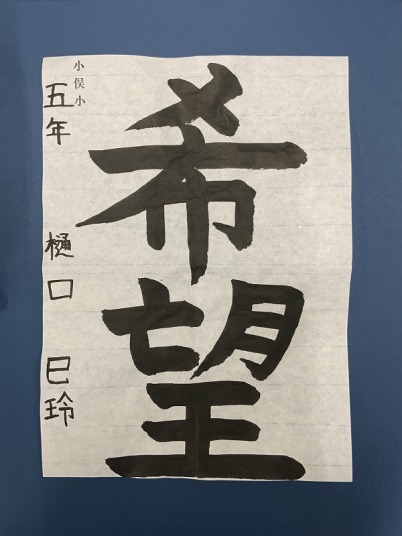 希望
小俣小
五年 樋口 巳玲